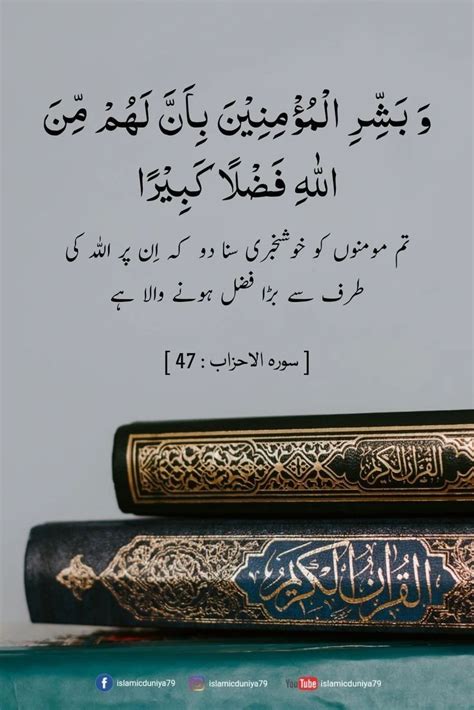 وَ بَشِّرِ الْمُؤْمِنِیْنَ بِاَنَّ لَهُمْ مِّنَ
اللّٰهِ فَضْلًا كَبِیْرًا
تم مومنوں کو خوشخبری سنا دو کہ اِن پر اللہ کی
طرف سے بڑا فضل ہونے والا ہے
[ سورہ الاحزاب : 47 ]
القرآن الكريم
القرآن الكريم
islamicduniya79 islamicduniya79 YouTube islamicduniya79